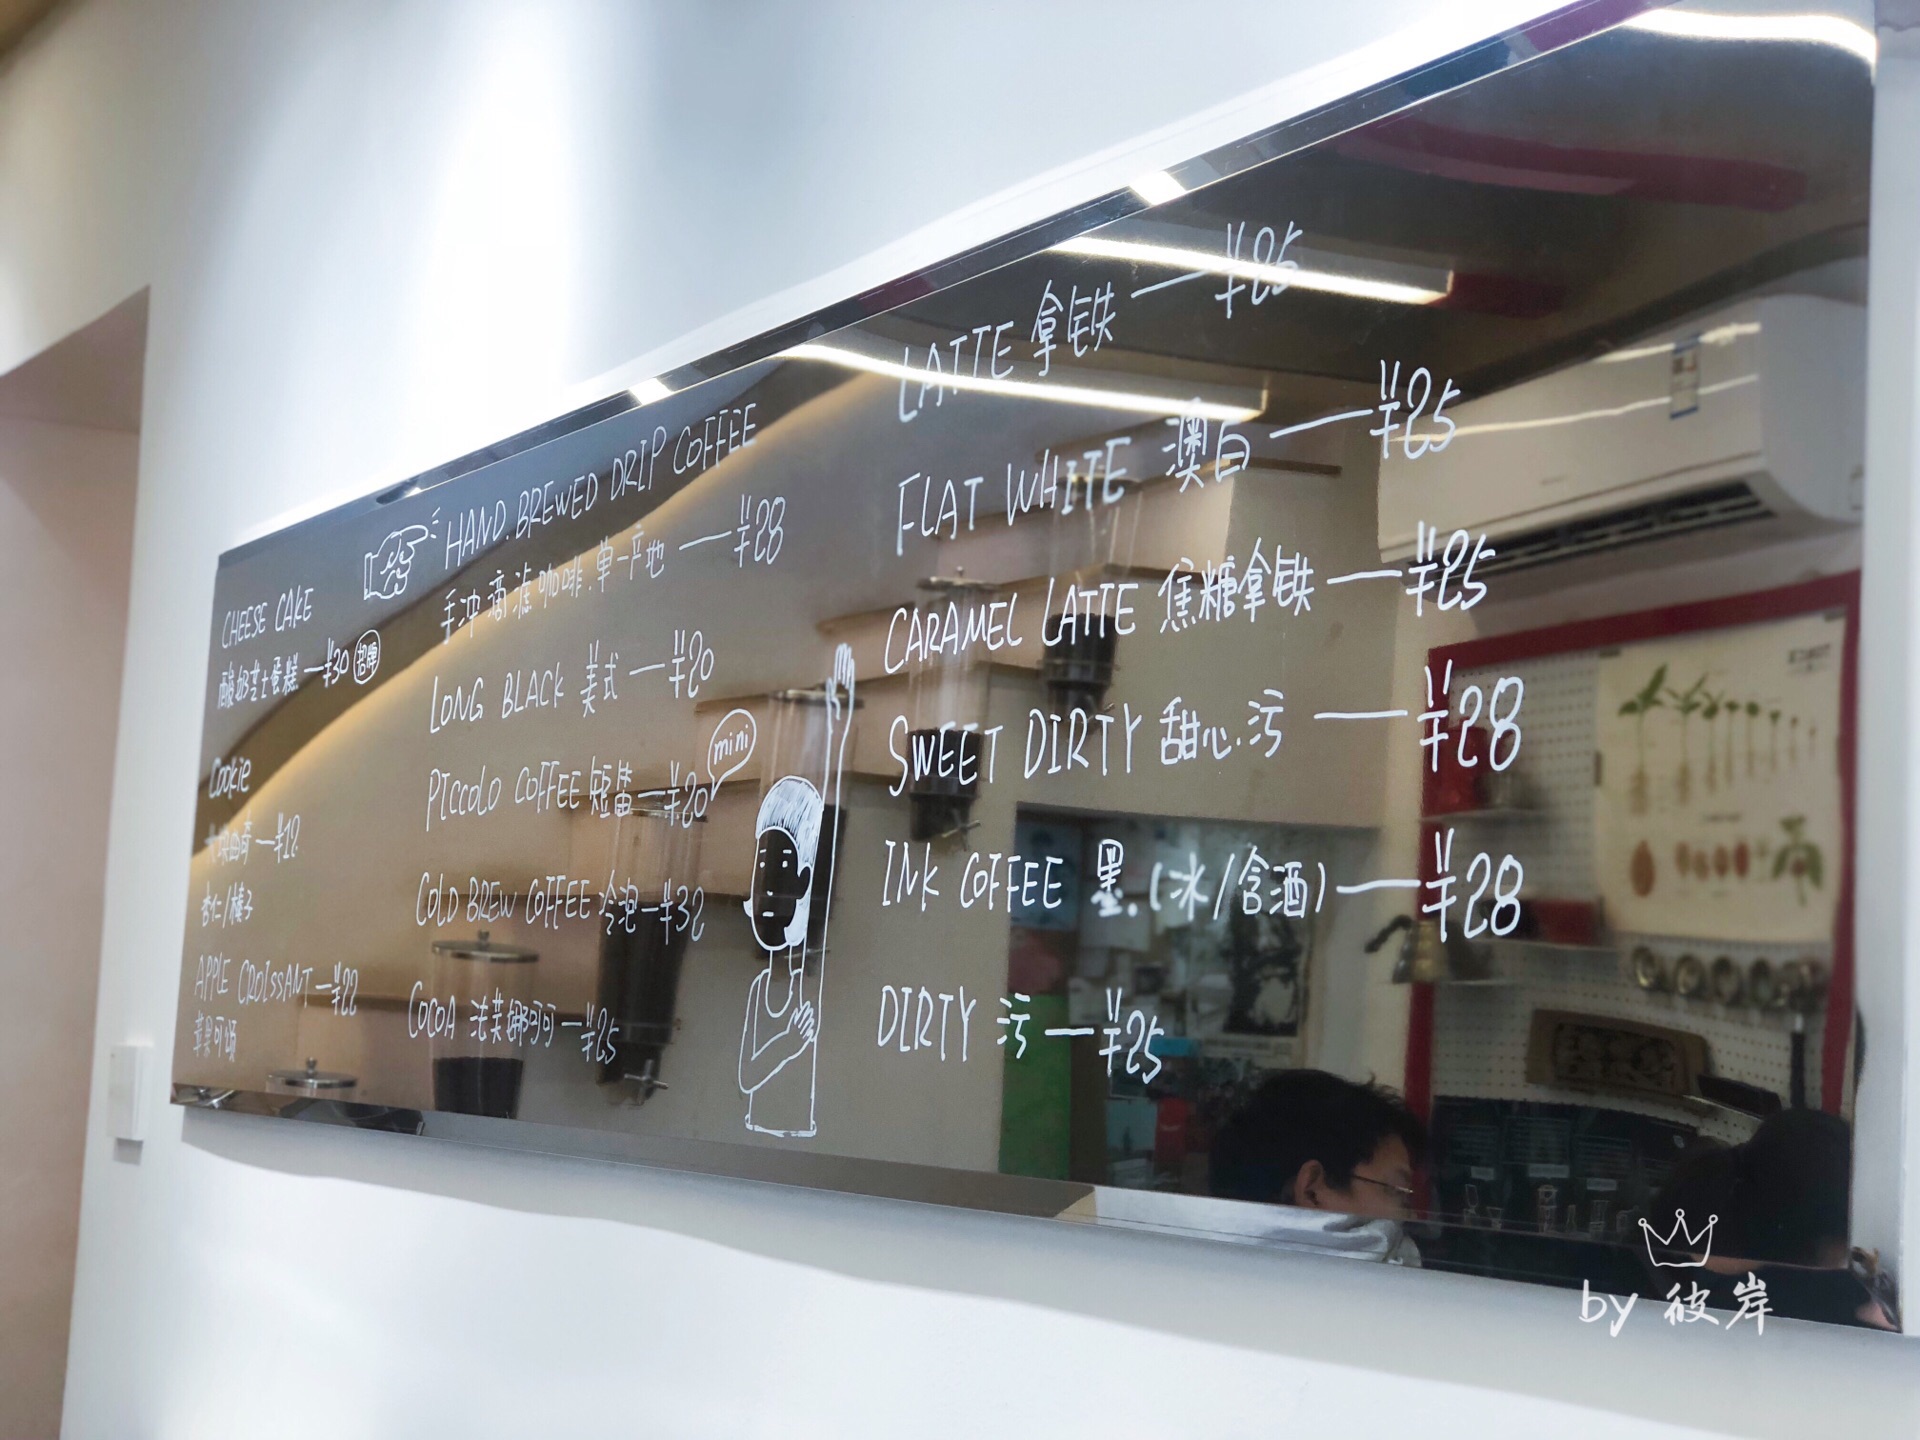 CHEESE CAKE
酸奶芝士蛋糕—¥30 招牌
Cookie
大块曲奇—¥12
杏仁/榛子
APPLE CROISSANT—¥22
苹果可颂
HAND.BREWED DRIP COFFEE
手冲滴滤咖啡.单一产地—¥28
LONG BLACK 美式—¥20
PICCOLO COFFEE 短笛—¥20
mini
COLD BREW COFFEE 冷泡—¥32
COCOA 法芙娜可可—¥25
LATTE 拿铁—¥25
FLAT WHITE 澳白—¥25
CARAMEL LATTE 焦糖拿铁—¥25
SWEET DIRTY 甜心.污—¥28
INK COFFEE 墨.(冰/含酒)—¥28
DIRTY 污—¥25
by 彼岸